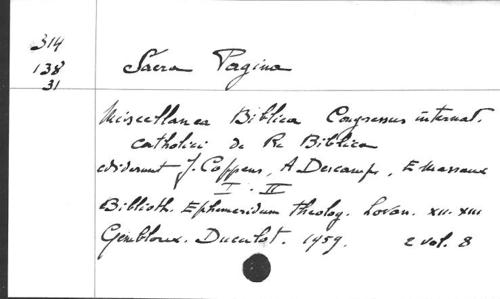 314
138
31
Sacra Pagina
Miscellanea Biblica Congressus internat.
catholici de Re Biblica
ediderunt J. Coppens, A Descamps, E Massaux
I. II
Biblioth. Ephemeridum theolog. Lovan. XII. XIII
Gembloux. Duculot. 1959. 2 vol. 8